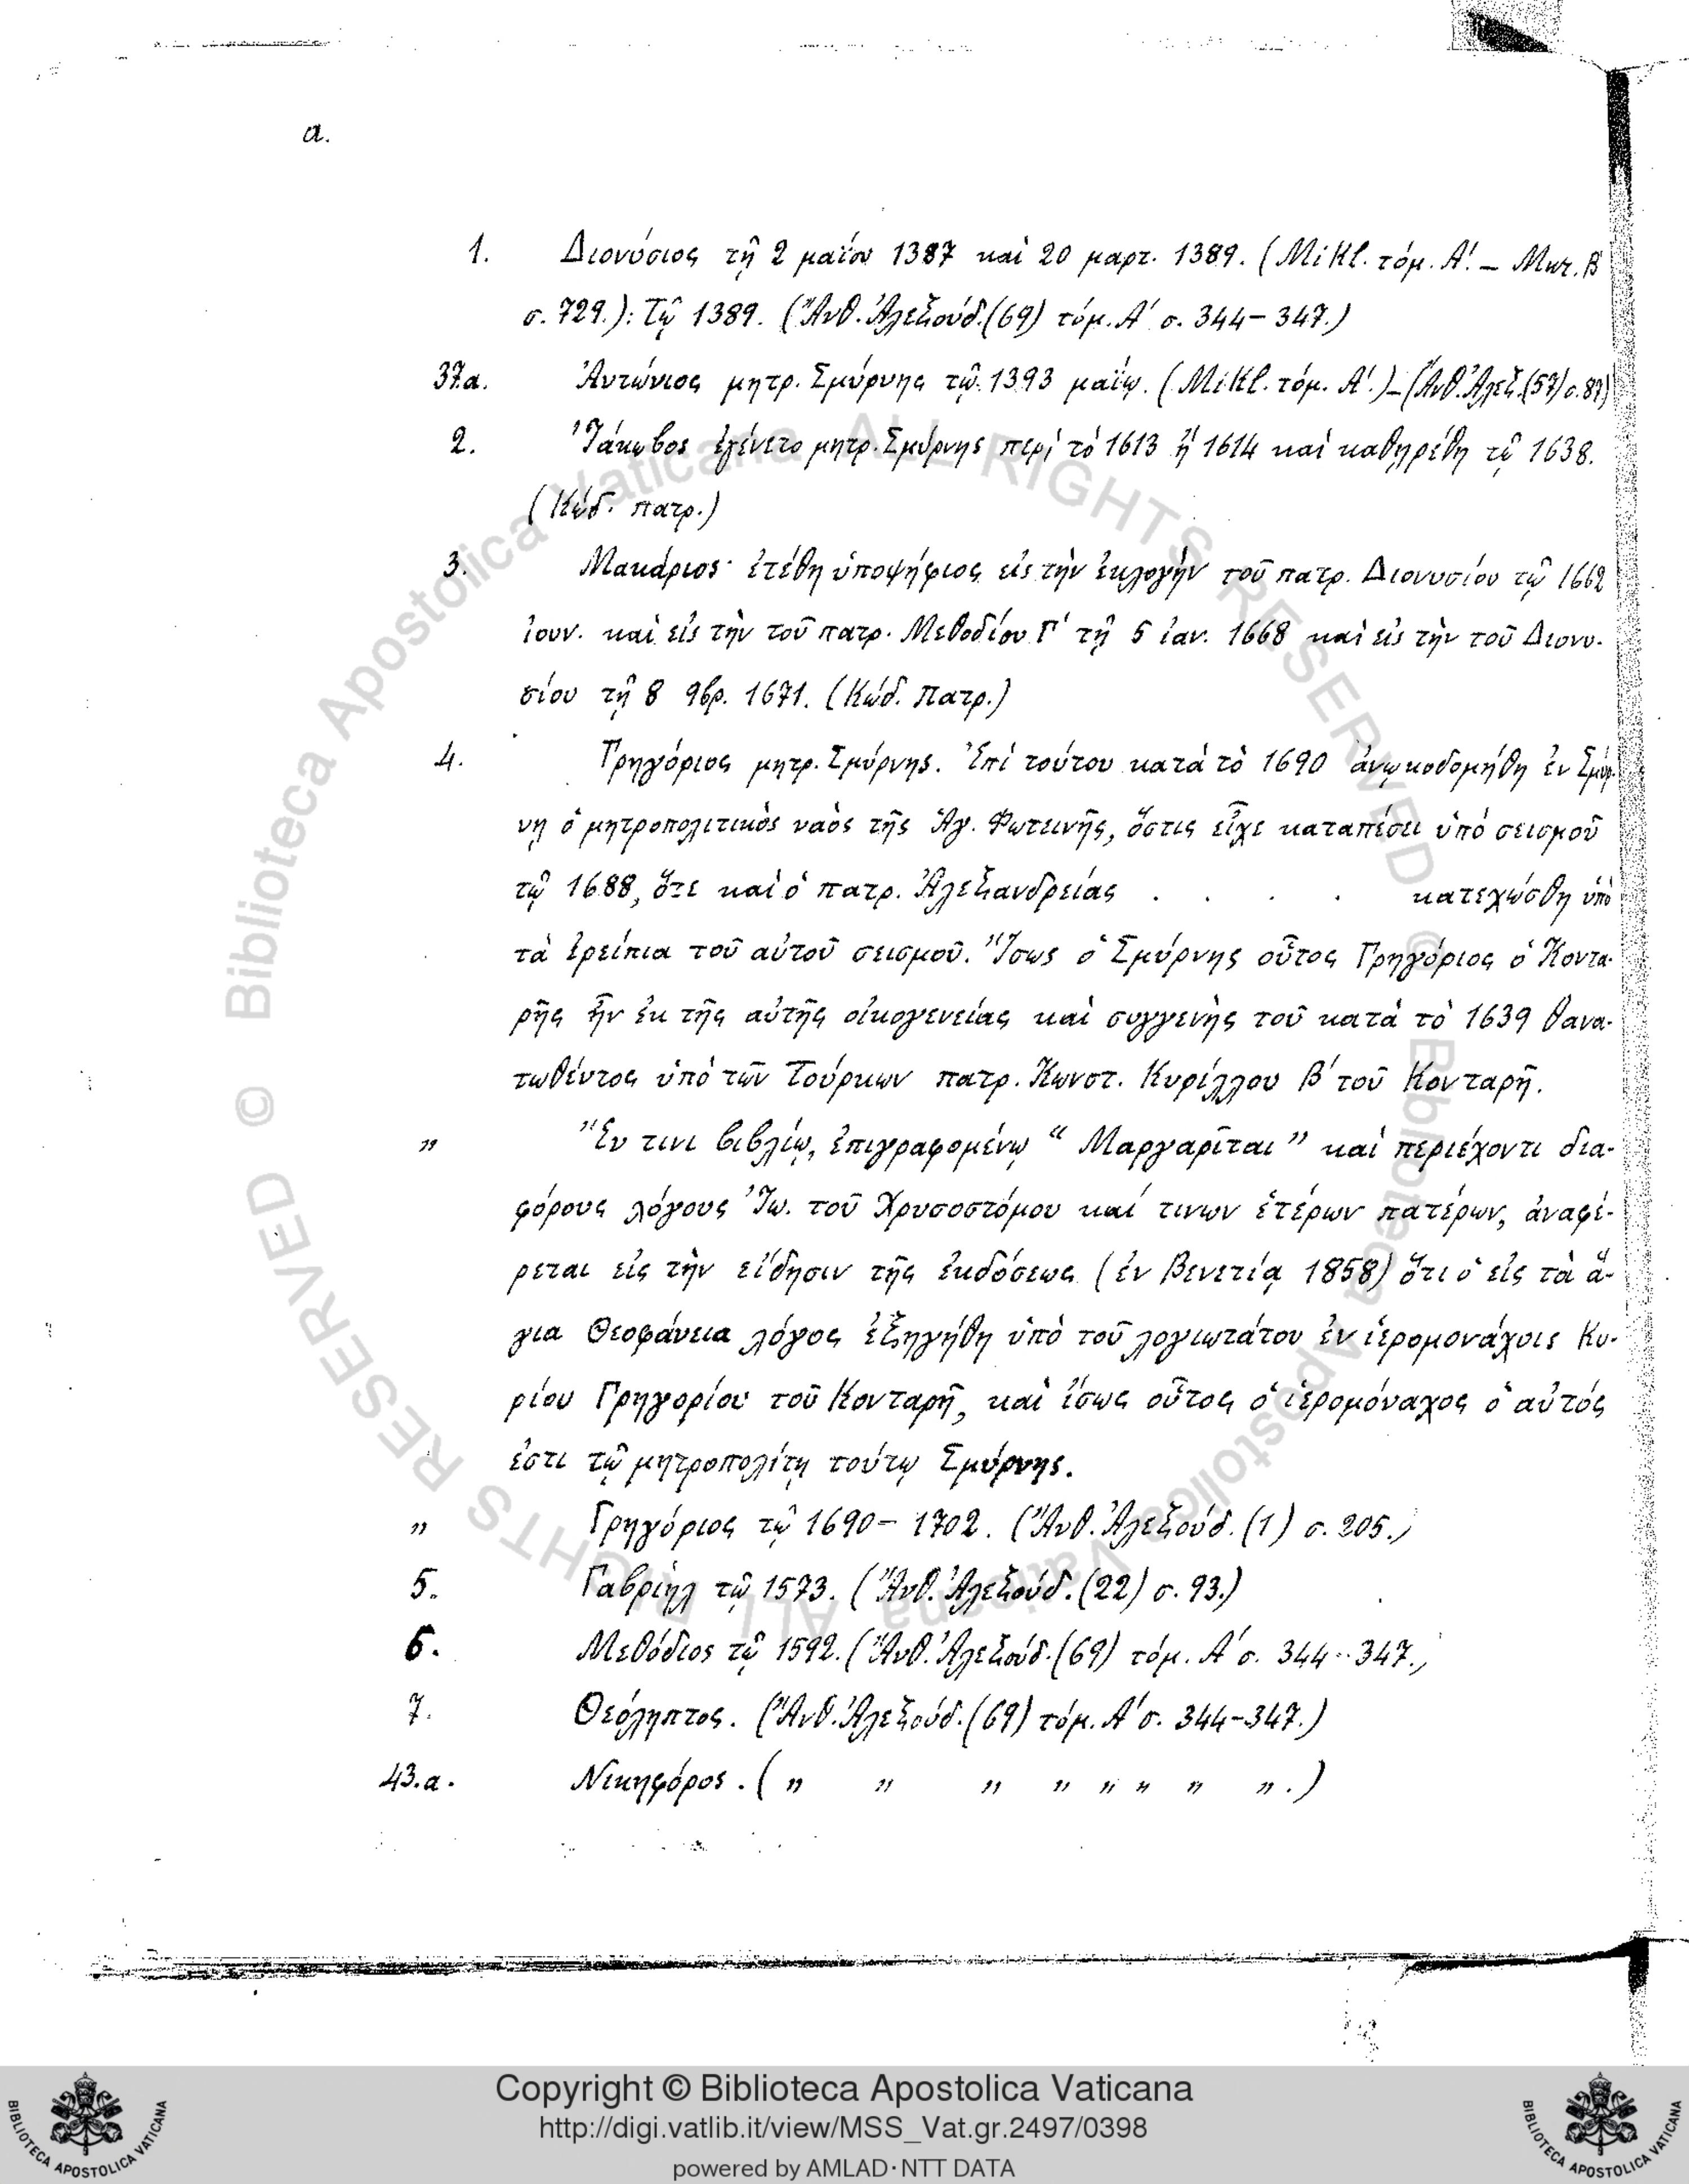 α.
1. Διονύσιος τῇ 2 μαΐου 1387 καὶ 20 μαρτ. 1389. (Mikl. τόμ. Α΄. –
σ. 729.): Τῷ 1389. (Ἄνθ. Ἀλεξούδ. (69) τόμ. Α΄ σ. 344–347.)
37.α. Ἀντώνιος μητρ. Σμύρνης τῷ 1393 μαΐῳ. (Mikl. τόμ. Α΄.) – (Ἄνθ. Ἀλεξ. (57) σ. 87)
2. Ἰάκωβος ἐγένετο μητρ. Σμύρνης περὶ τὸ 1613 ἢ 1614 καὶ καθῃρέθη τῷ 1638.
(Κώδ. πατρ.)
3. Μακάριος· ἐτέθη ὑποψήφιος εἰς τὴν ἐκλογὴν τοῦ πατρ. Διονυσίου τῷ 1662
ἰουν. καὶ εἰς τὴν τοῦ πατρ. Μεθοδίου Γ΄ τῇ 5 ἰαν. 1668 καὶ εἰς τὴν τοῦ Διονυ-
σίου τῇ 8 9βρ. 1671. (Κώδ. Πατρ.)
4. Γρηγόριος μητρ. Σμύρνης. Ἐπὶ τούτου κατὰ τὸ 1690 ἀνῳκοδομήθη ἐν Σμύρ-
νῃ ὁ μητροπολιτικὸς ναὸς τῆς Ἁγ. Φωτεινῆς, ὅστις εἶχε καταπέσει ὑπὸ σεισμοῦ
τῷ 1688, ὅτε καὶ ὁ πατρ. Ἀλεξανδρείας . . . . κατεχώσθη ὑπὸ
τὰ ἐρείπια τοῦ αὐτοῦ σεισμοῦ. Ἴσως ὁ Σμύρνης οὗτος Γρηγόριος ὁ Κοντα-
ρῆς ἦν ἐκ τῆς αὐτῆς οἰκογενείας καὶ συγγενὴς τοῦ κατὰ τὸ 1639 θανα-
τωθέντος ὑπὸ τῶν Τούρκων πατρ. Κωνστ. Κυρίλλου Β΄ τοῦ Κονταρῆ.
" Ἔν τινι βιβλίῳ, ἐπιγραφομένῳ “ Μαργαρῖται ” καὶ περιέχοντι δια-
φόρους λόγους Ἰω. τοῦ Χρυσοστόμου καί τινων ἑτέρων πατέρων, ἀναφέ-
ρεται εἰς τὴν εἴδησιν τῆς ἐκδόσεως (ἐν Βενετίᾳ 1858) ὅτι ὁ εἰς τὰ ἅ-
για Θεοφάνεια λόγος ἐξηγήθη ὑπὸ τοῦ λογιωτάτου ἐν ἱερομονάχοις Κυ-
ρίου Γρηγορίου τοῦ Κονταρῆ, καὶ ἴσως οὗτος ὁ ἱερομόναχος ὁ αὐτός
ἐστι τῷ μητροπολίτῃ τούτῳ Σμύρνης.
" Γρηγόριος τῷ 1690– 1702. (Ἄνθ. Ἀλεξούδ. (1) σ. 205.)
5. Γαβριὴλ τῷ 1573. (Ἄνθ. Ἀλεξούδ. (22) σ. 93.)
6. Μεθόδιος τῷ 1592. (Ἄνθ. Ἀλεξούδ. (69) τόμ. Α΄ σ. 344–347.)
7. Θεόληπτος. (Ἄνθ. Ἀλεξούδ. (69) τόμ. Α΄ σ. 344–347.)
43.α. Νικηφόρος. (" " " " " " " ".)
© Biblioteca Apostolica Vaticana ALL RIGHTS RESERVED
© Biblioteca Apostolica Vaticana ALL RIGHTS RESERVED
BIBLIOTECA APOSTOLICA VATICANA
Copyright © Biblioteca Apostolica Vaticana
http://digi.vatlib.it/view/MSS_Vat.gr.2497/0398
powered by AMLAD·NTT DATA
BIBLIOTECA APOSTOLICA VATICANA